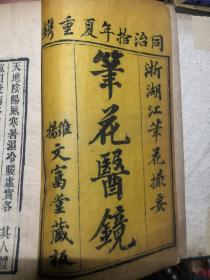 同治拾年夏重鐫
浙湖江筆花撮要
筆花醫鏡
維揚文富堂藏板
天地陰陽風寒暑濕冷暖虛實各
其人體